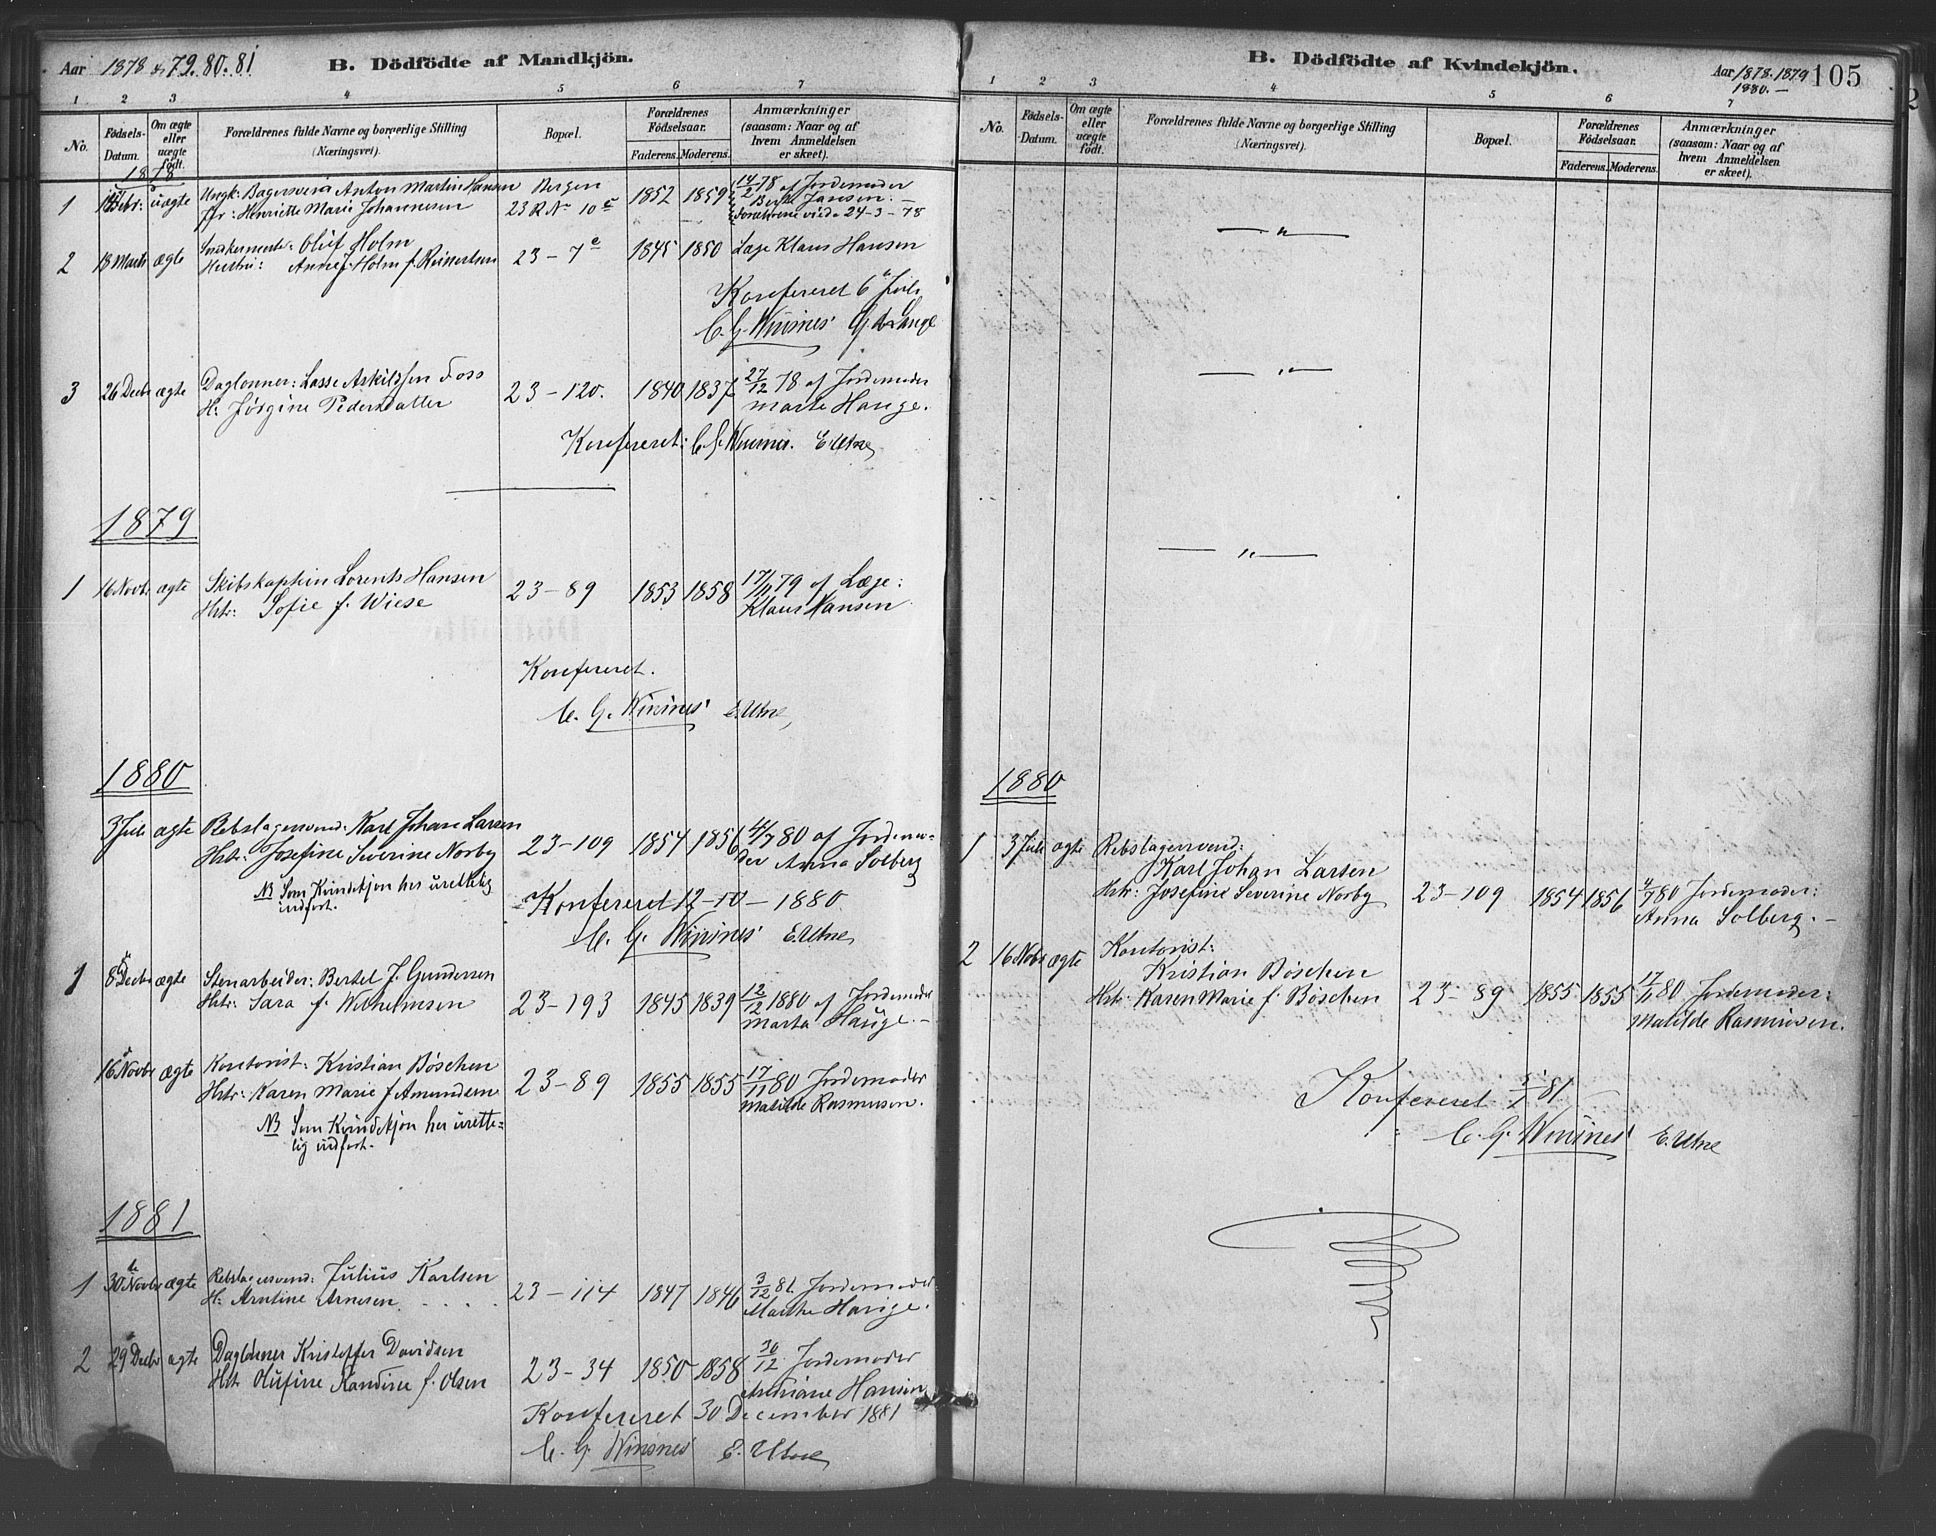 Aar 1878 79. 80. 81
B. Dödfödte af Mandkjön.
1 2 3 4 5 6 7
No.
Födsels-Datum.
Om ægte eller uægte födt.
Forældrenes fulde Navne og borgerlige Stilling
(Næringsvei).
Bopæl.
Forældrenes Födselsaar.
Faderens. Moderens.
Anmærkninger
(saasom: Naar og af
hvem Anmeldelsen
er skeet).
1878
1 Febr: uægte Ungk: Bagersvend Anton Martin Hansen Bergen 1852 1859 14/2 78 af Jordemoder
Pgr: Henriette Marie Johannesen 23 R No 10 c Jansen. —
Forældrene viede 24-3-78
2 18 Marts ægte Snedkermester: Oluf Holm 23 – 7 e 1845 1850 Læge Klaus Hansen
Hustru: Anne J. Holm f. Reinertsen
Konfereret 6 Juli
C. G. Winsnes G. Lange
3 26 Decbr ægte Daglønner: Lasse Askildsen Foss 23 – 120. 1840 1837 27/12 78 af Jordemoder
H. Jørgine Pedersdatter Marte Hauge.
Konfereret: C. G. Winsnes. E Utne
1879
1 16 Novbr ægte Skibskaptein Lorents Hansen 23 – 89 1853 1858 17/11 79 af Læge:
Hstr: Sofie f. Wiese Klaus Hansen
Konfereret.
C. G. Winsnes E. Utne,
1880
3 Juli ægte Rebslagersvend: Karl Johan Larsen 23 – 109 1854 1856 4/7 80 af Jordemo-
Hstr: Josefine Severine Norby der Anna Solberg
NB Som Kvindekjøn her urettelig
indført.
Konfereret 12 – 10 – 1880
C. G. Winsnes E. Utne,
1 8 Decbr ægte Stenarbeider: Bertel J. Gundersen 23 – 193 1845 1839 12/12 1880 af Jordemoder
Hstr: Sara f. Wilhelmsen Marta Hauge. –
16 Novbr ægte Kontorist: Kristian Böschen 23 – 89 1855 1855 17/11 80 Jordemoder
Hstr: Karen Marie f. Amundsen Matilde Rasmusen.
NB Som Kvindekjøn her urette-
lig indført.
1881
1 30 Novbr ægte Rebslagersvend: Julius Karlsen 23 – 114 1847 1846 3/12 81. Jordemoder
H. Arntine Arnesen. Marthe Hauge.
2 29 Decbr ægte Daglönner Kristoffer Davidsen 23 – 34 1850 1858 30/12 Jordemoder
Hstr Olufine Kandine f. Olsen Andriane Hansen
Konfereret 30 December 1881
C. G. Winsnes E. Utne
B. Dödfödte af Kvindekjön.
Aar 1878. 1879
1880. –
105
1 2 3 4 5 6 7
No.
Födsels-Datum.
Om ægte eller uægte födt.
Forældrenes fulde Navne og borgerlige Stilling
(Næringsvei).
Bopæl.
Forældrenes Födselsaar.
Faderens. Moderens.
Anmærkninger
(saasom: Naar og af
hvem Anmeldelsen
er skeet).
— " —
— " —
— " —
1880
1 3 Juli ægte Rebslagersvend:
Karl Johan Larsen
Hstr: Josefine Severine Norby 23 – 109 1854 1856 4/7 80 Jordemoder:
Anna Solberg. –
2 16 Nobr ægte Kontorist:
Kristian Böschen
Hstr: Karen Marie f. Böschen 23 – 89 1855 1855 17/11 80 Jordemoder:
Matilde Rasmusen.
Konfereret 5/1 81
C. G. Winsnes E. Utne